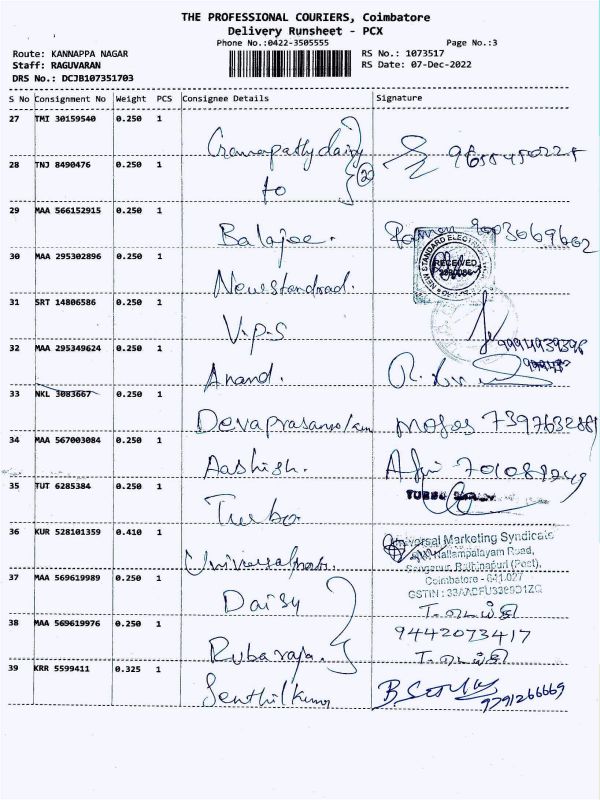 THE PROFESSIONAL COURIERS, Coimbatore
Delivery Runsheet - PCX
Phone No.:0422-3505555
Page No.:3
Route: KANNAPPA NAGAR
RS No.: 1073517
Staff: RAGUVARAN
RS Date: 07-Dec-2022
DRS No.: DCJB107351703
S No Consignment No Weight PCS Consignee Details Signature
27 TMI 30159540 0.250 1
28 TNJ 8490476 0.250 1
to
29 MAA 566152915 0.250 1
Balajee.
30 MAA 295302896 0.250 1
NEW STANDARD ELECTRIC
RECEIVED
31 SRT 14806586 0.250 1
V.P.S
9994939398
32 MAA 295349624 0.250 1
Anand.
33 NKL 3083667 0.250 1
34 MAA 567003084 0.250 1
Aashish.
35 TUT 6285384 0.250 1
TURBO
Turbo
36 KUR 528101359 0.410 1
Universal Marketing Syndicate
Nallampalayam Road,
Coimbatore - 641 027
37 MAA 569619989 0.250 1
Daisy
38 MAA 569619976 0.250 1
9442073417
Rubaraja.
39 KRR 5599411 0.325 1
Senthilkumar
9791266669